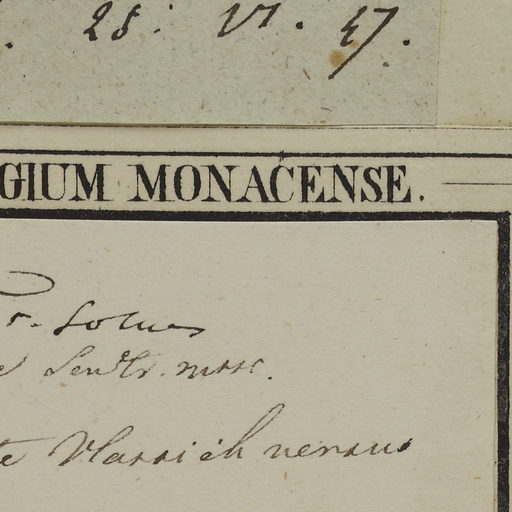 28. VI. 47.
GIUM MONACENSE.
Sendtn. mss.
te Vlassich versus